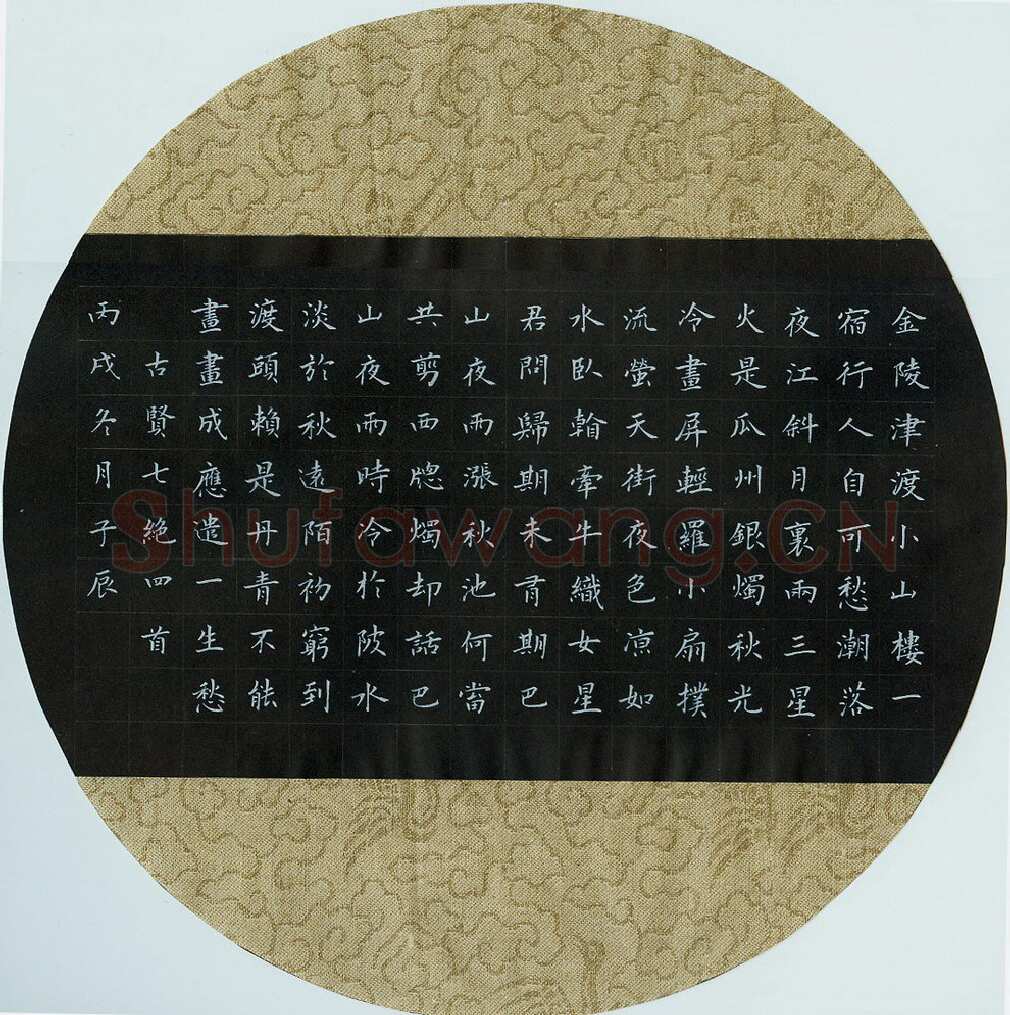 金陵津渡小山樓一
宿行人自可愁潮落
夜江斜月裏兩三星
火是瓜州銀燭秋光
冷畫屏輕羅小扇撲
流螢天街夜色凉如
水臥翰牽牛織女星
君問歸期未有期巴
山夜雨漲秋池何當
共剪西牕燭却話巴
山夜雨時冷於陂水
淡於秋遠陌初窮到
渡頭賴是丹青不能
畫畫成應遣一生愁
古賢七絕四首
丙戌冬月子辰
Shufawang.CN